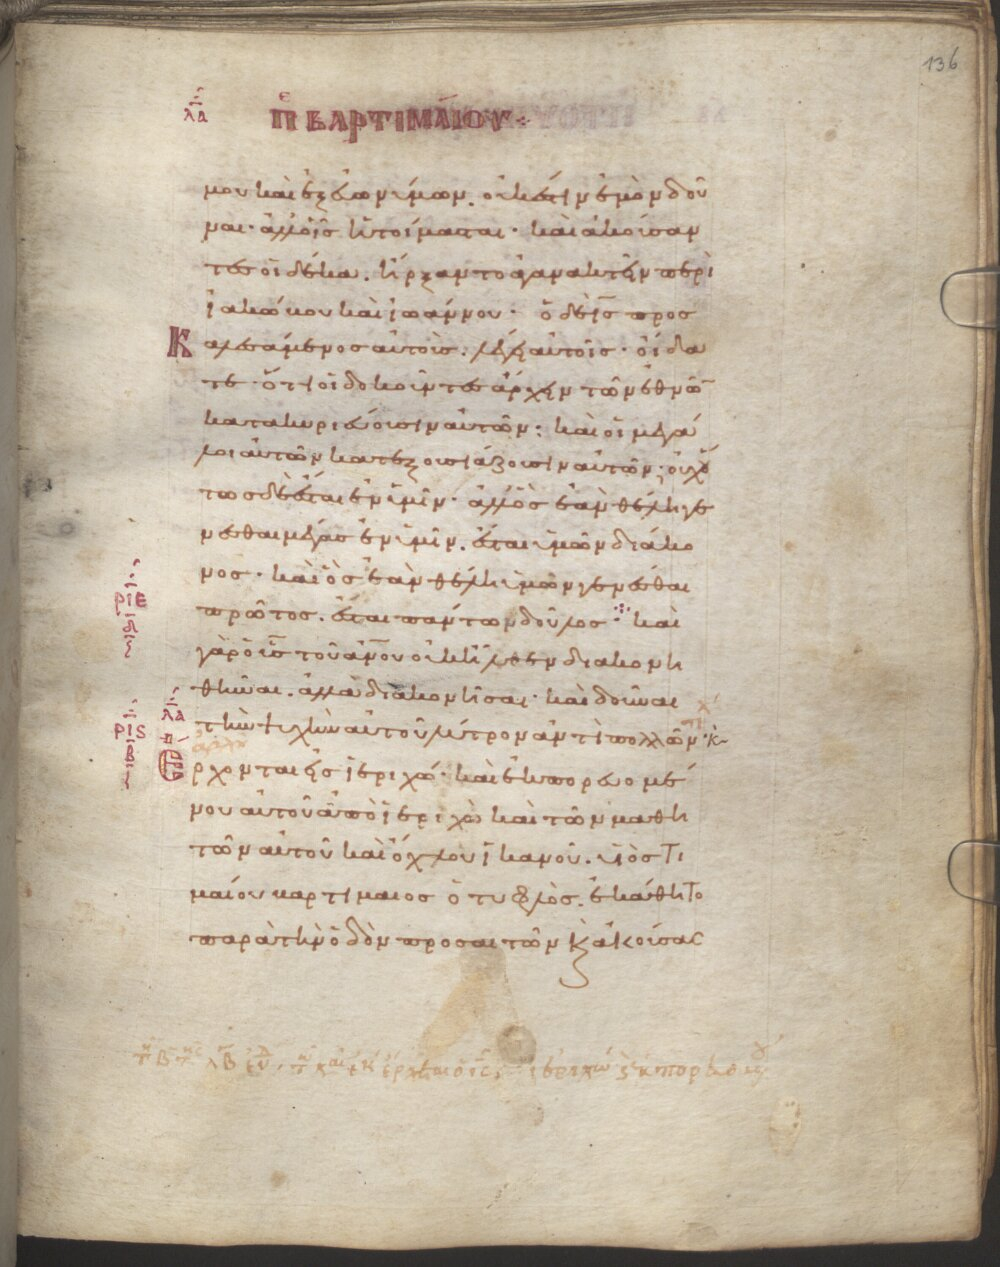 136
λα πε ΒΑΡΤΙΜΑΙΟΥ
μου καὶ ἐξ εὐωνύμων. οὐκ ἔστιν ἐμὸν δοῦ
ναι· ἀλλ' οἷς ἡτοίμασται· καὶ ἀκούσαν
τες οἱ δέκα. ἤρξαντο ἀγανακτεῖν περὶ
ἰακώβου καὶ ἰωάννου· ὁ δὲ ις προς
Καλεσάμενος αὐτοὺς. λέγει αὐτοῖς· οἴδα
τε ὅτι οἱ δοκοῦντες ἄρχειν τῶν ἐθνῶ
κατακυριεύουσιν αὐτῶν· καὶ οἱ μεγά
λοι αὐτῶν κατεξουσιάζουσιν αὐτῶν· οὐχ οὕ
τως δὲ ἔσται ἐν ὑμῖν· ἀλλ' ὃς ἐὰν θέλῃ γε
νέσθαι μέγας ἐν ὑμῖν. ἔσται ὑμῶν διάκο
νος· καὶ ὃς ἐὰν θέλῃ ὑμῶν γενέσθαι
ριε
πρῶτος. ἔσται πάντων δοῦλος· καὶ
γὰρ ὁ υς τοῦ ανου οὐκ ἦλθεν διακονη
θῆναι. ἀλλὰ διακονῆσαι· καὶ δοῦναι
ρις λα
τὴν ψυχὴν αὐτοῦ λύτρον ἀντὶ πολλῶν· κ
Ερχονται εἰς ἱεριχώ· καὶ ἐκπορευομέ
νου αὐτοῦ ἀπὸ ἱεριχὼ καὶ τῶν μαθη
τῶν αὐτοῦ καὶ ὄχλου ἱκανοῦ. υἱὸς Τι
μαίου βαρτίμαιος ὁ τυφλὸς. ἐκάθητο
παρὰ τὴν ὁδὸν προσαιτῶν κ ἀκούσας